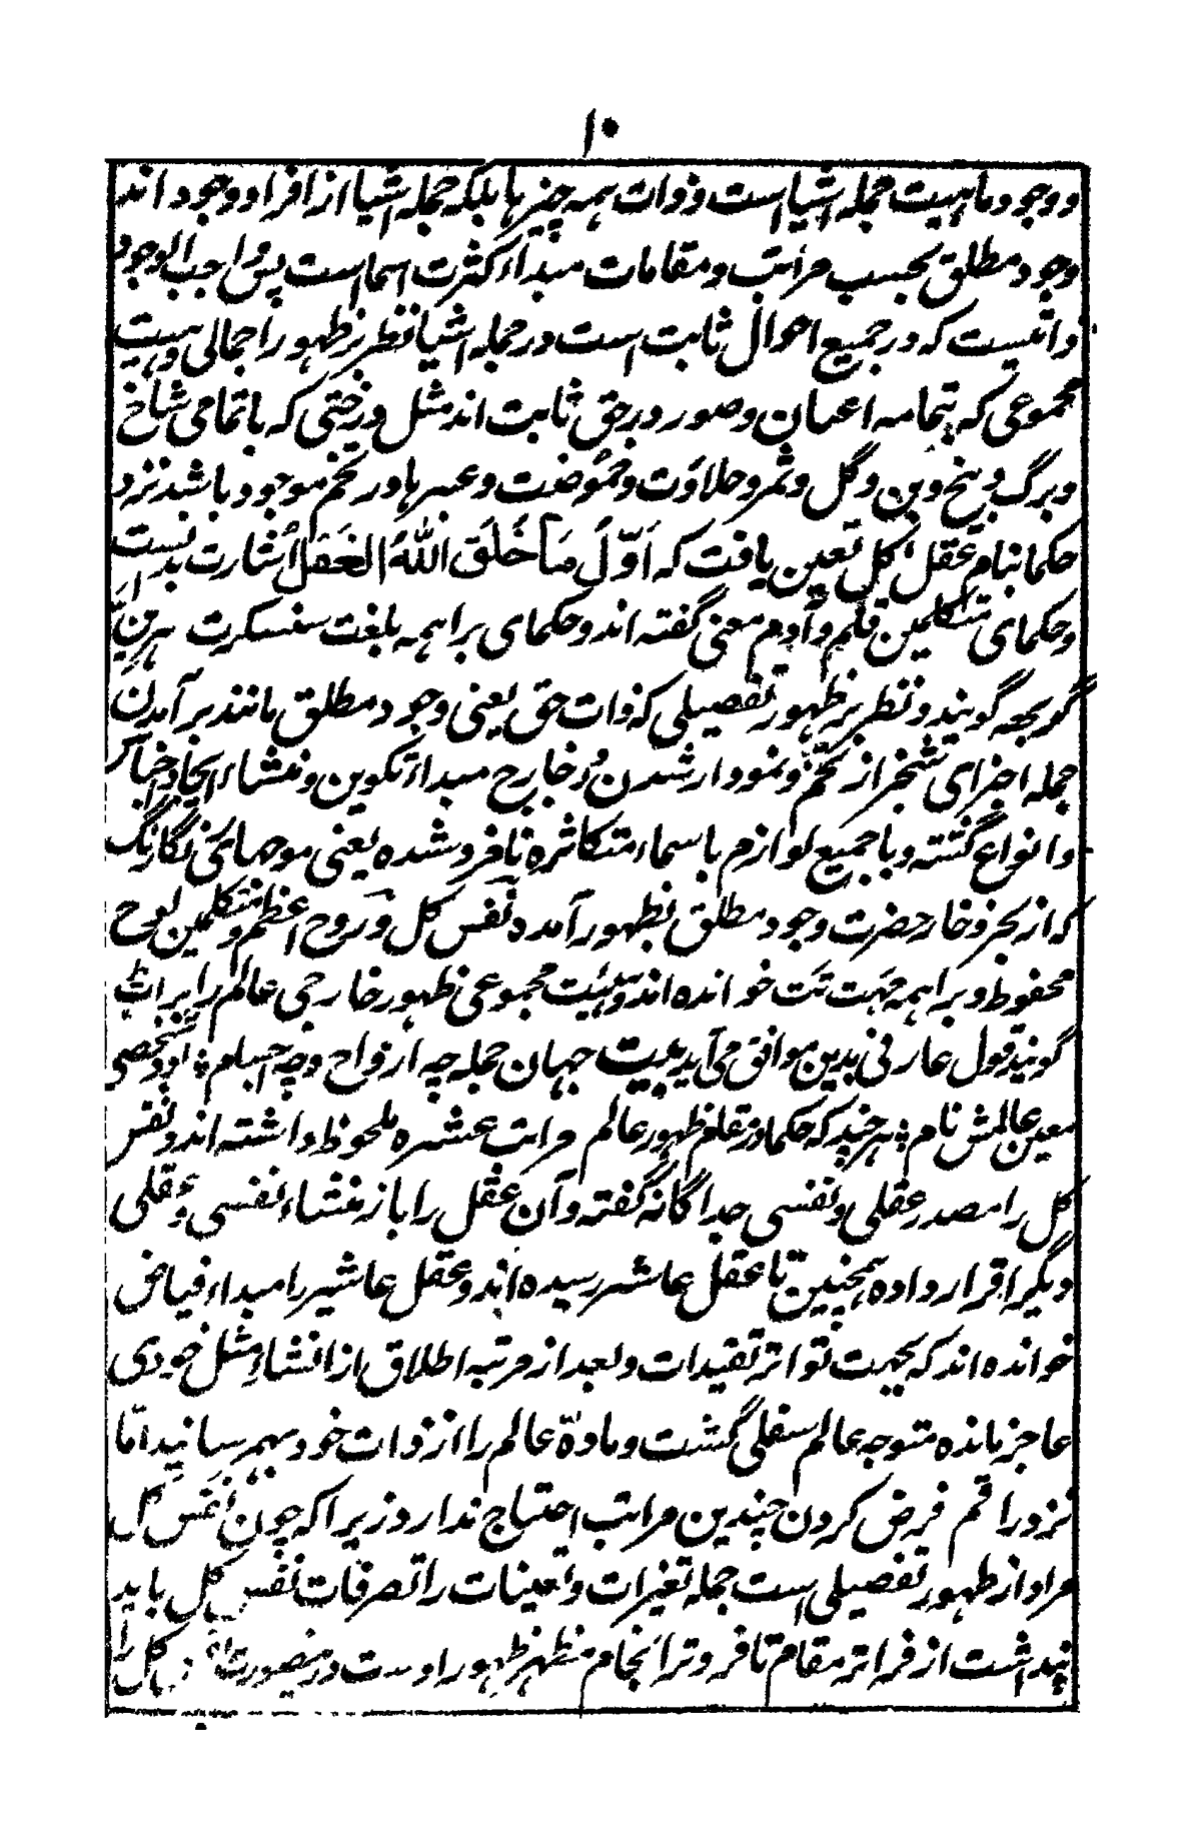 ۱۰
و وجود ماهیت جمله اشیااست و ذات همه چیزها بلکه جمله اشیا از افراد وجود اند
وجود مطلق بحسب مراتب و مقامات مبداء کثرت اسمااست پس واجب الوجود
ذاتیست که در جمیع احوال ثابت است در جمله اشیا نظر بر ظهور اجمالی وهیت
مجموعی که بتمامه اعیان و صور در حق ثابت اند مثل درختی که با تمامی شاخ
و برگ و بیخ و بن و گل و ثمر و حلاوت و حموضت و غیرها در تخم موجود باشد نزد
حکما بنام عقل کل تعین یافت که اَوّلُ مَا خَلَقَ اللّٰهُ العَقلُ اشارت بدانست
و حکمای متکلمین قلم و آدم معنی گفته اند و حکمای براهمه بلغت سنسکرت هرن
گربهه گویند و نظر بر ظهور تفصیلی که ذات حق یعنی وجود مطلق مانند برآمدن
جمله اجزای شجر از تخم و نمودار شدن در خارج مبداء تکوین و منشاء ایجاد اجناس
و انواع گشته و با جمیع لوازم باسماء متکاثره نافرد شده یعنی موجهای نگارنگ
که از بحر ذخار حضرت وجود مطلق بظهور آمده نفس کل و روح اعظم و متکلمین لوح
محفوظ و براهمه مهت تت خوانده اند و هیئت مجموعی ظهور خارجی عالم را براٹ
گویند قول عارفی بدین موافق می آید بیت جهان جمله چه ارواح و چه اجسام ؛ بود شخصی
معین عالمش نام ؛ هر چند که حکما در مقام ظهور عالم مراتب عشره ملحوظ داشته اند و نفس
کل را مصدر عقلی و نفسی جداگانه گفته و آن عقل را باز منشاء نفسی و عقلی
دیگر اقرار داده همچنین تا عقل عاشر رسیده اند و عقل عاشر را مبداء فیاض
خوانده اند که بجهت تواتر تقیدات و بعد از مرتبه اطلاق از انشاء مثل خودی
عاجز مانده متوجه عالم سفلی گشت و مادهٔ عالم را از ذات خود بهم رسانید امّا
نزد راقم فرض کردن چندین مراتب احتیاج ندارد زیرا که چون نفس کل
مراد از ظهور تفصیلی است جمله تغیرات و تعینات را تصرفات نفس کل باید
پنداشت از فراتر مقام تا فروتر انجام مظهر ظهور اوست درینصورت کل را